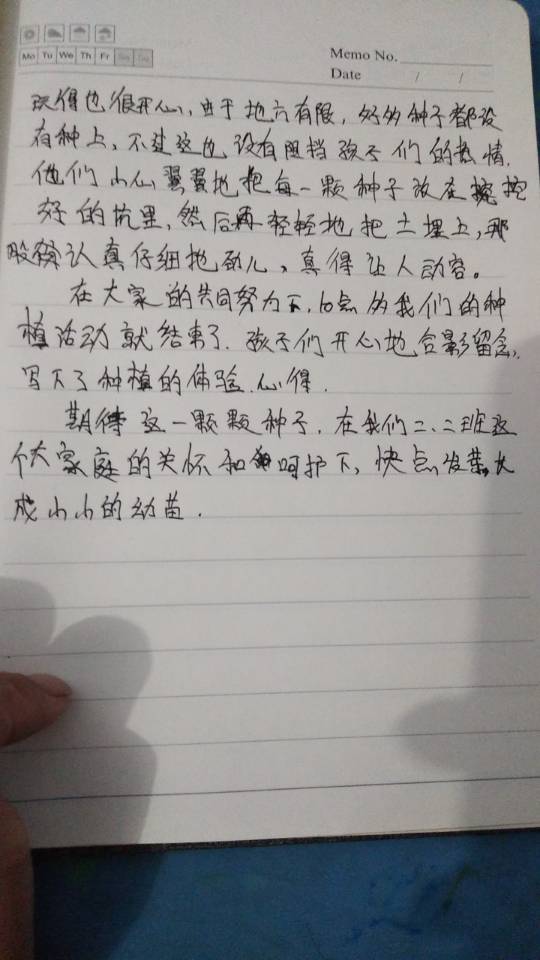 Mo Tu We Th Fr Sa Su
Memo No.
Date / /
玩得也很开心,由于地方有限,好多种子都没
有种上,不过这也没有阻挡孩子们的热情,
他们小心翼翼地把每一颗种子放在挖
好的坑里,然后再轻轻地把土埋上,那
股认真仔细地劲儿,真得让人动容。
在大家的共同努力下,10点多我们的种
植活动就结束了.孩子们开心地合影留念,
写下了种植的体验.心得.
期待这一颗颗种子.在我们二.二班这
个大家庭的关怀和呵护下,快点发芽,长
成小小的幼苗.